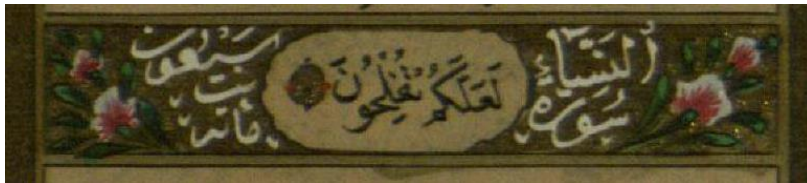 سورة النساء
لَعَلَّكُمْ تُفْلِحُونَ
مائة
ست
سبعون